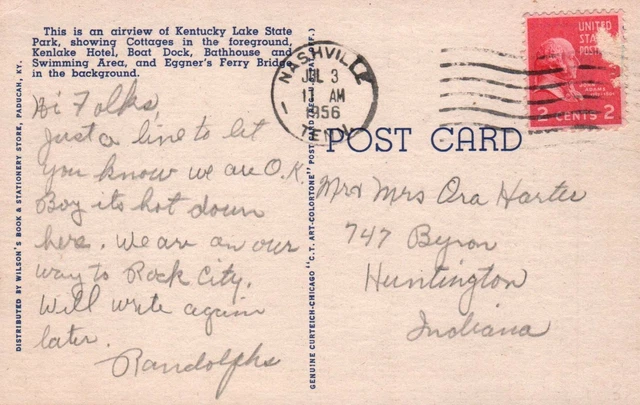 This is an airview of Kentucky Lake State
Park, showing Cottages in the foreground,
Kenlake Hotel, Boat Dock, Bathhouse and
Swimming Area, and Eggner's Ferry Bridge
in the background.
DISTRIBUTED BY WILSON'S BOOK & STATIONERY STORE, PADUCAH, KY.
Hi Folks,
Just a line to let
you know we are O.K.
Boy its hot down
here. We are on our
way to Rock City.
Will write again
later.
Randolphs
GENUINE CURTEICH-CHICAGO "C.T. ART-COLORTONE" POST
NASHVILLE
JUL 3
11 AM
1956
TENN
POST CARD
UNITED
POST
ADAMS
2 CENTS 2
Mr & Mrs Ora Harter
747 Byron
Huntington
Indiana